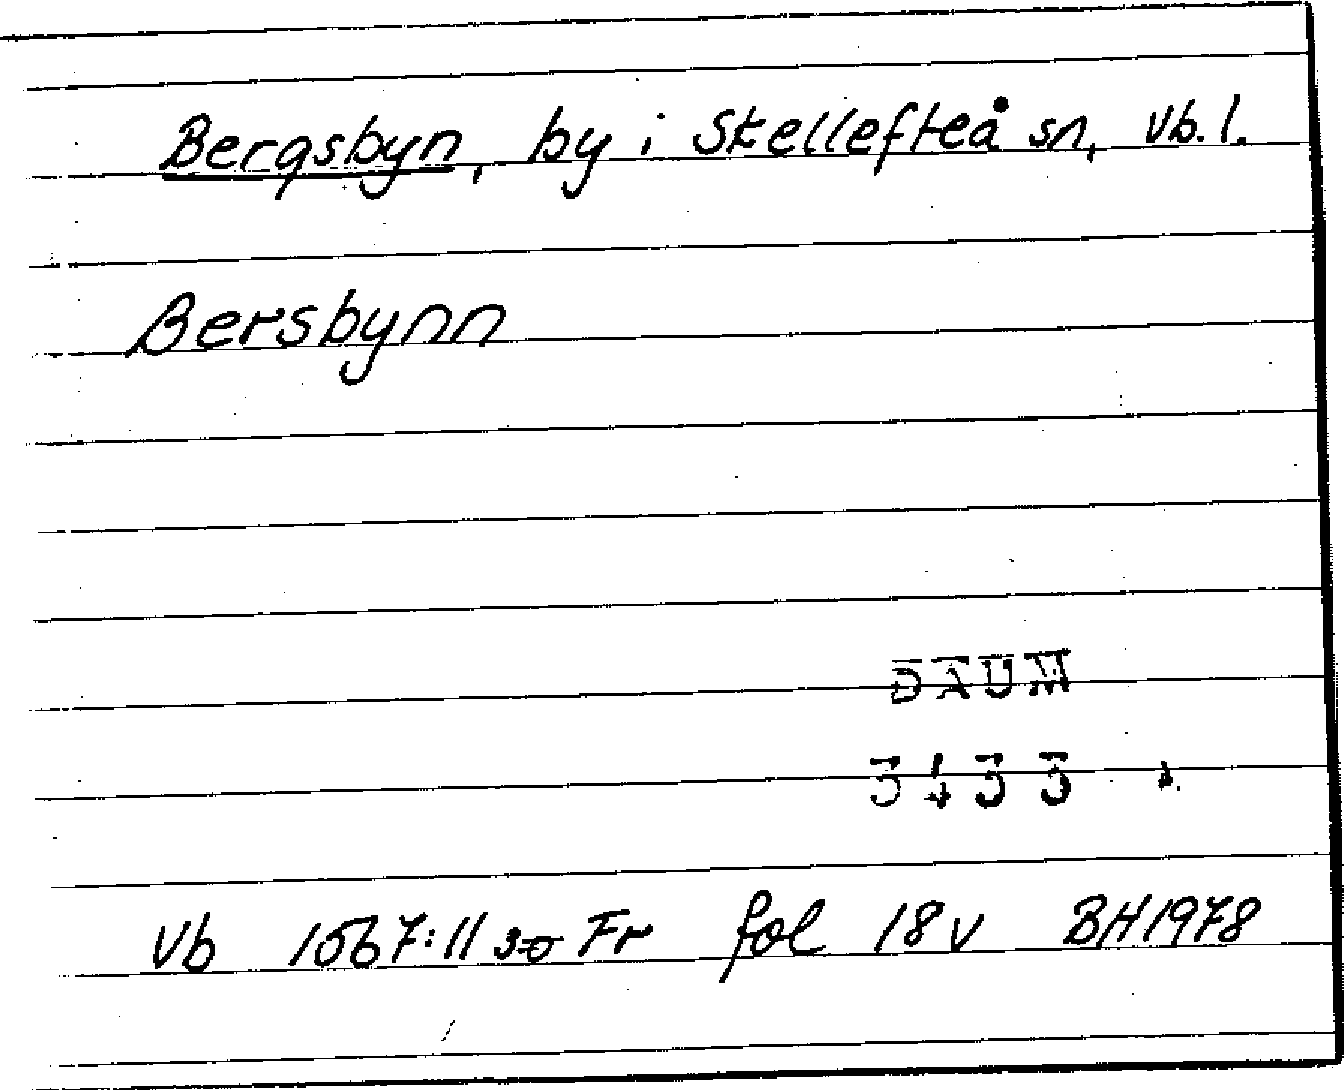 Bergsbyn, by i Skellefteå sn, Vb. l.
Bersbynn
DAUM
3433
Vb 1567:11 Fr fol 18 v BH1978